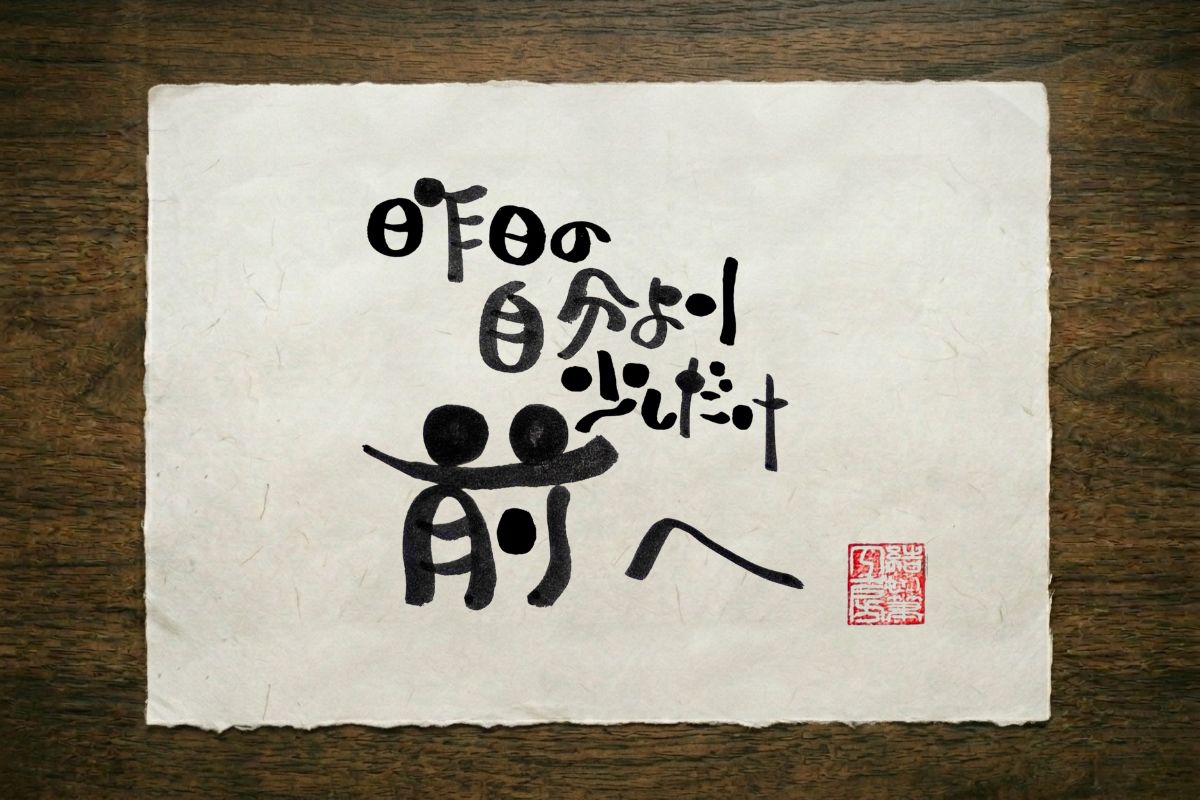 昨日の
自分より
少しだけ
前へ